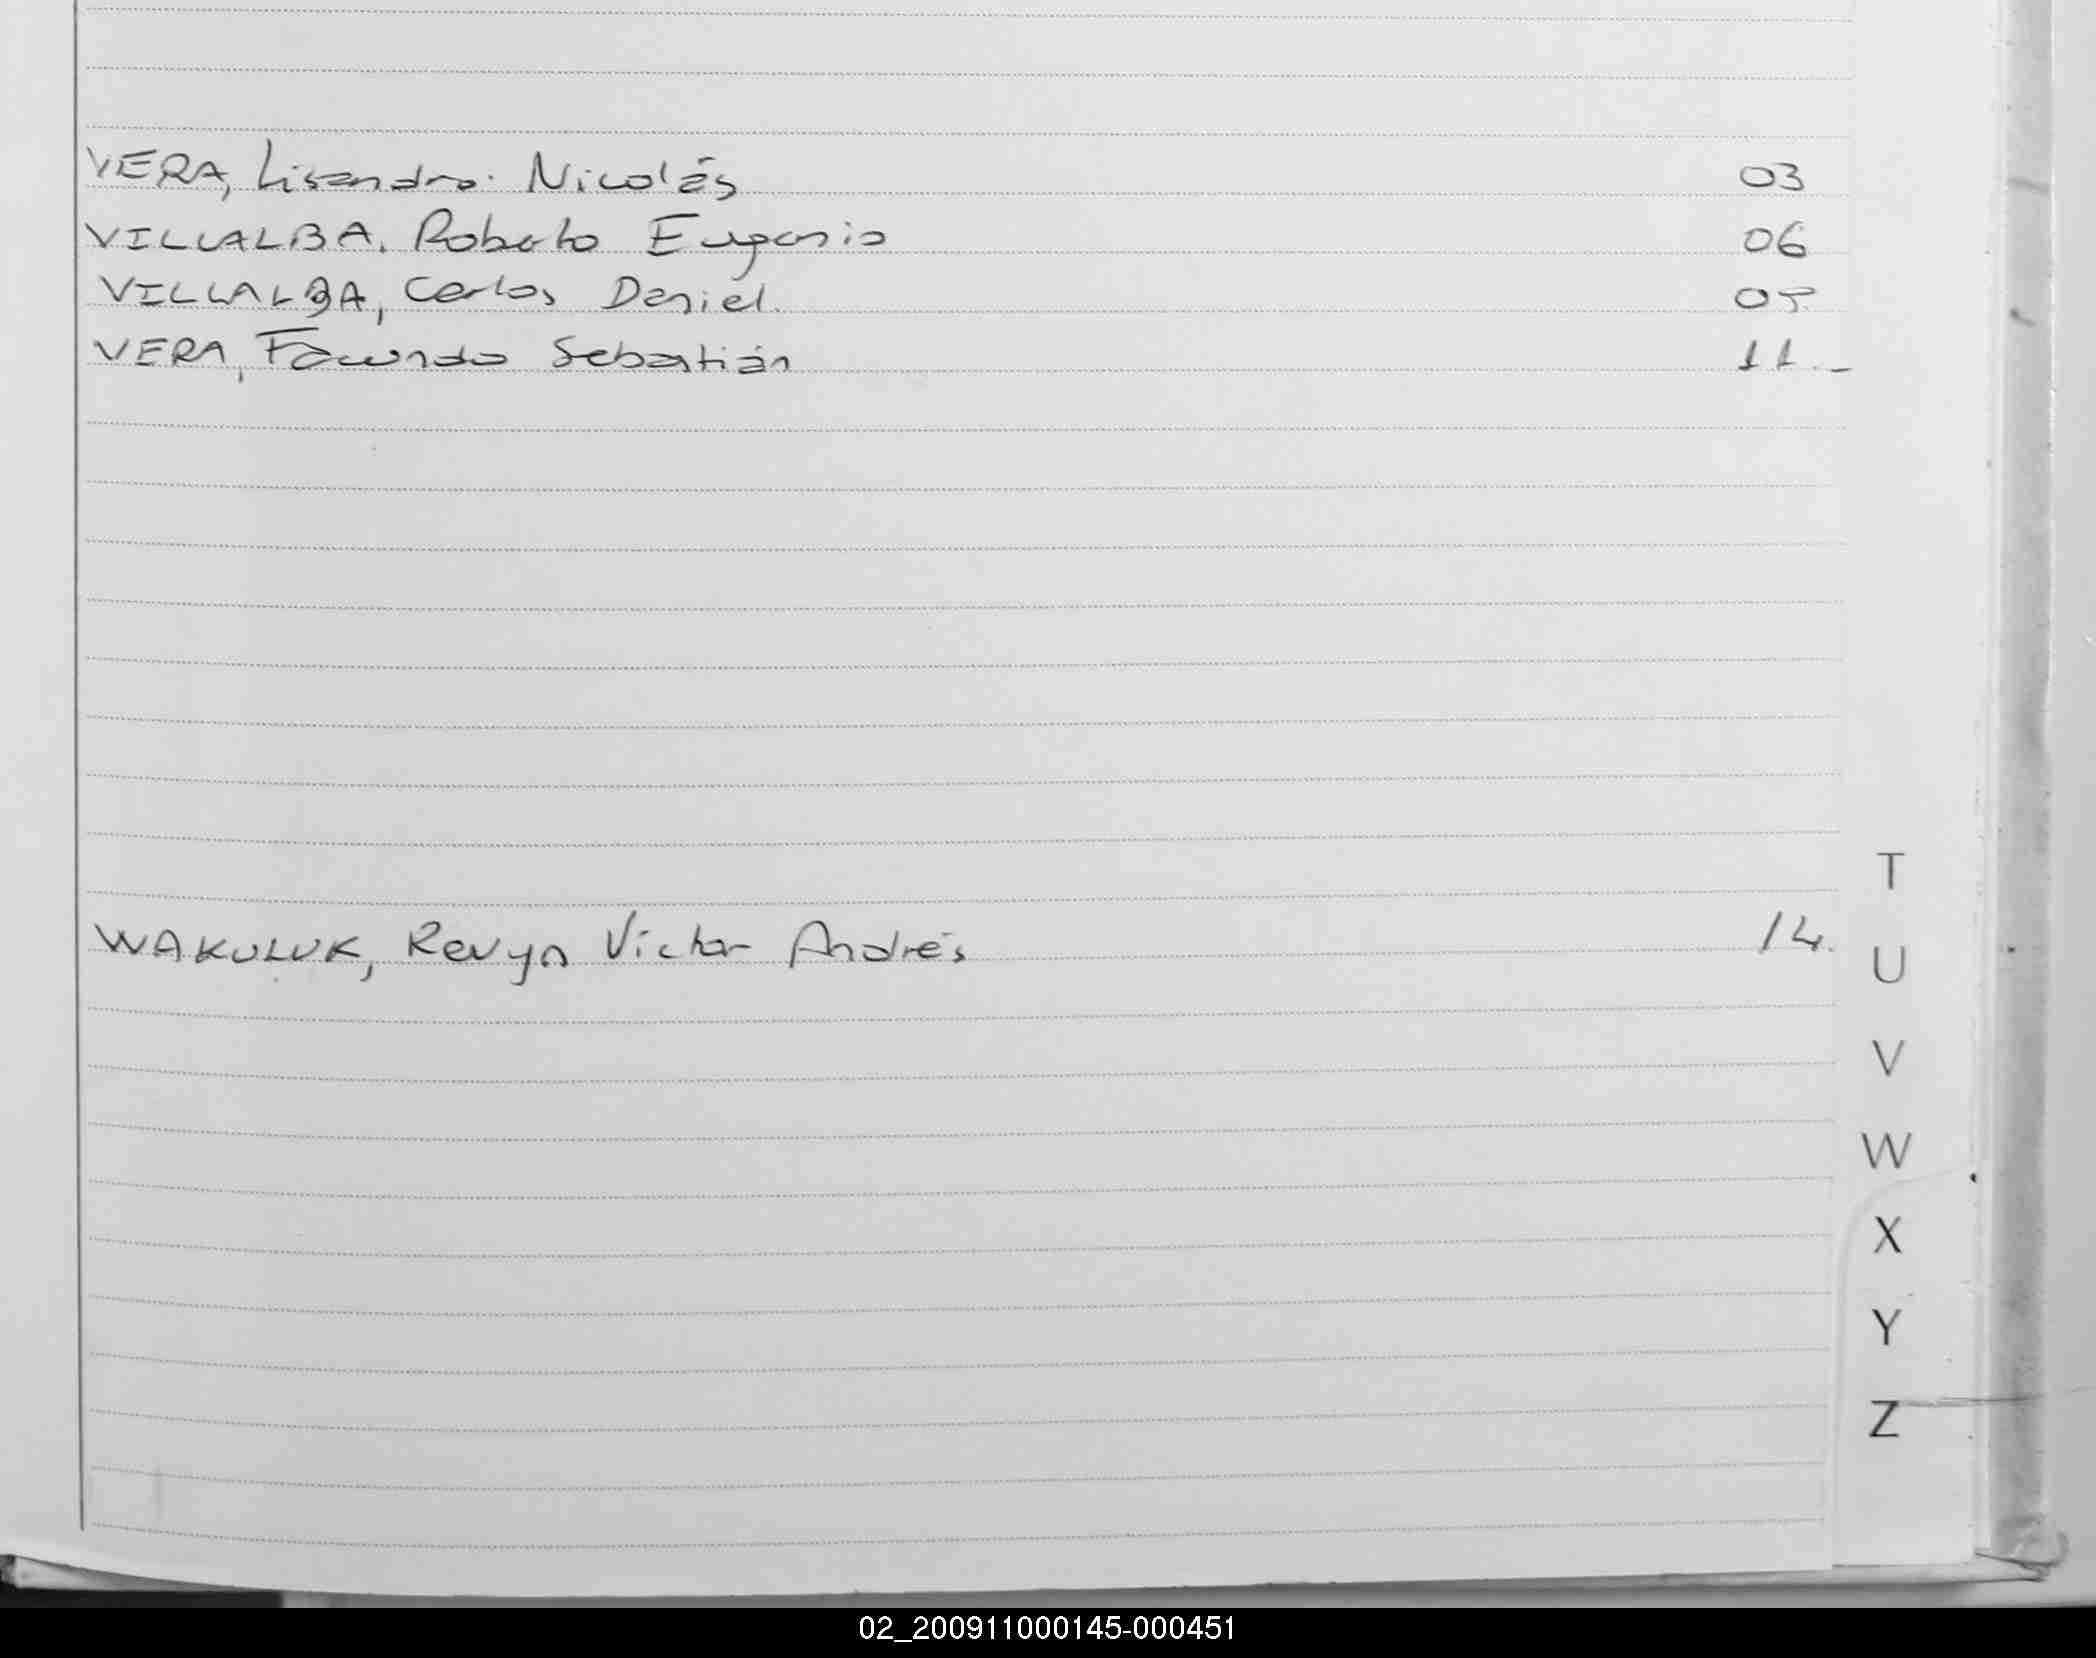 VERA, Lisandro Nicolás 03
VILLALBA, Roberto Eugenio 06
VILLALBA, Carlos Daniel. 05
VERA, Facundo Sebastián 11._
T
WAKULUK, Victor Andrés 14.
U
V
W
X
Y
Z
02_200911000145-000451